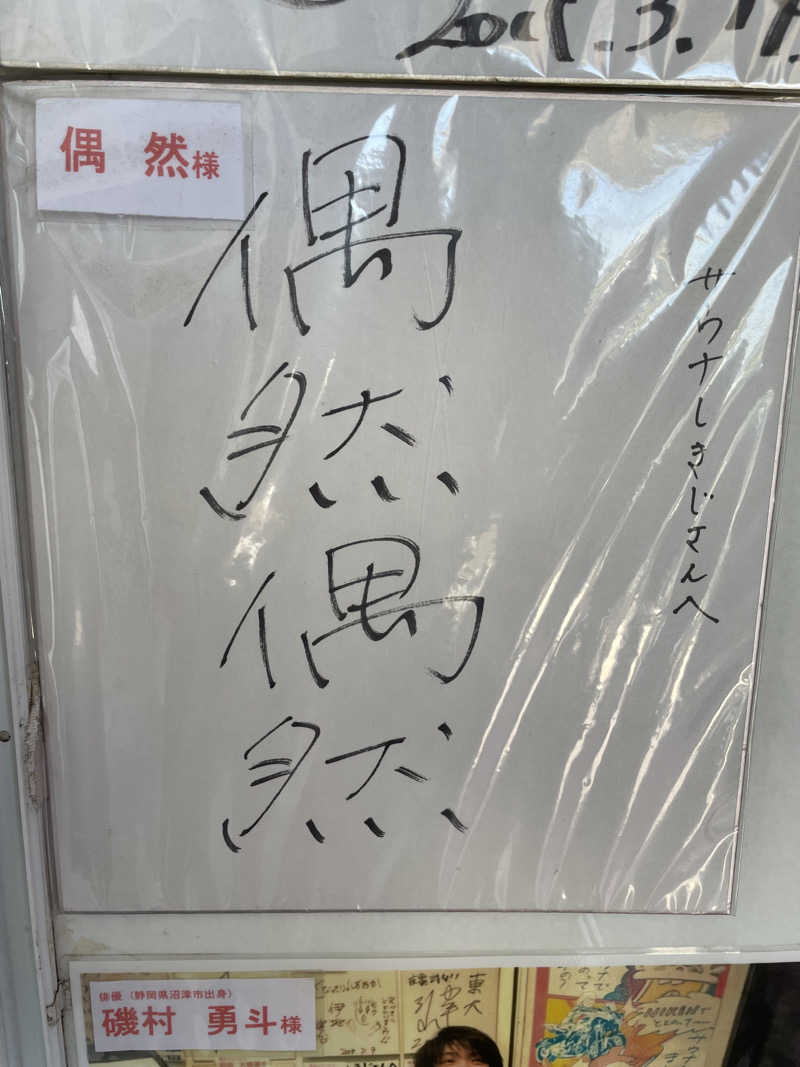 2019.3.17.
偶然様
サウナしきじさんへ
偶然
偶然
俳優（静岡県沼津市出身）
磯村 勇斗様
東大